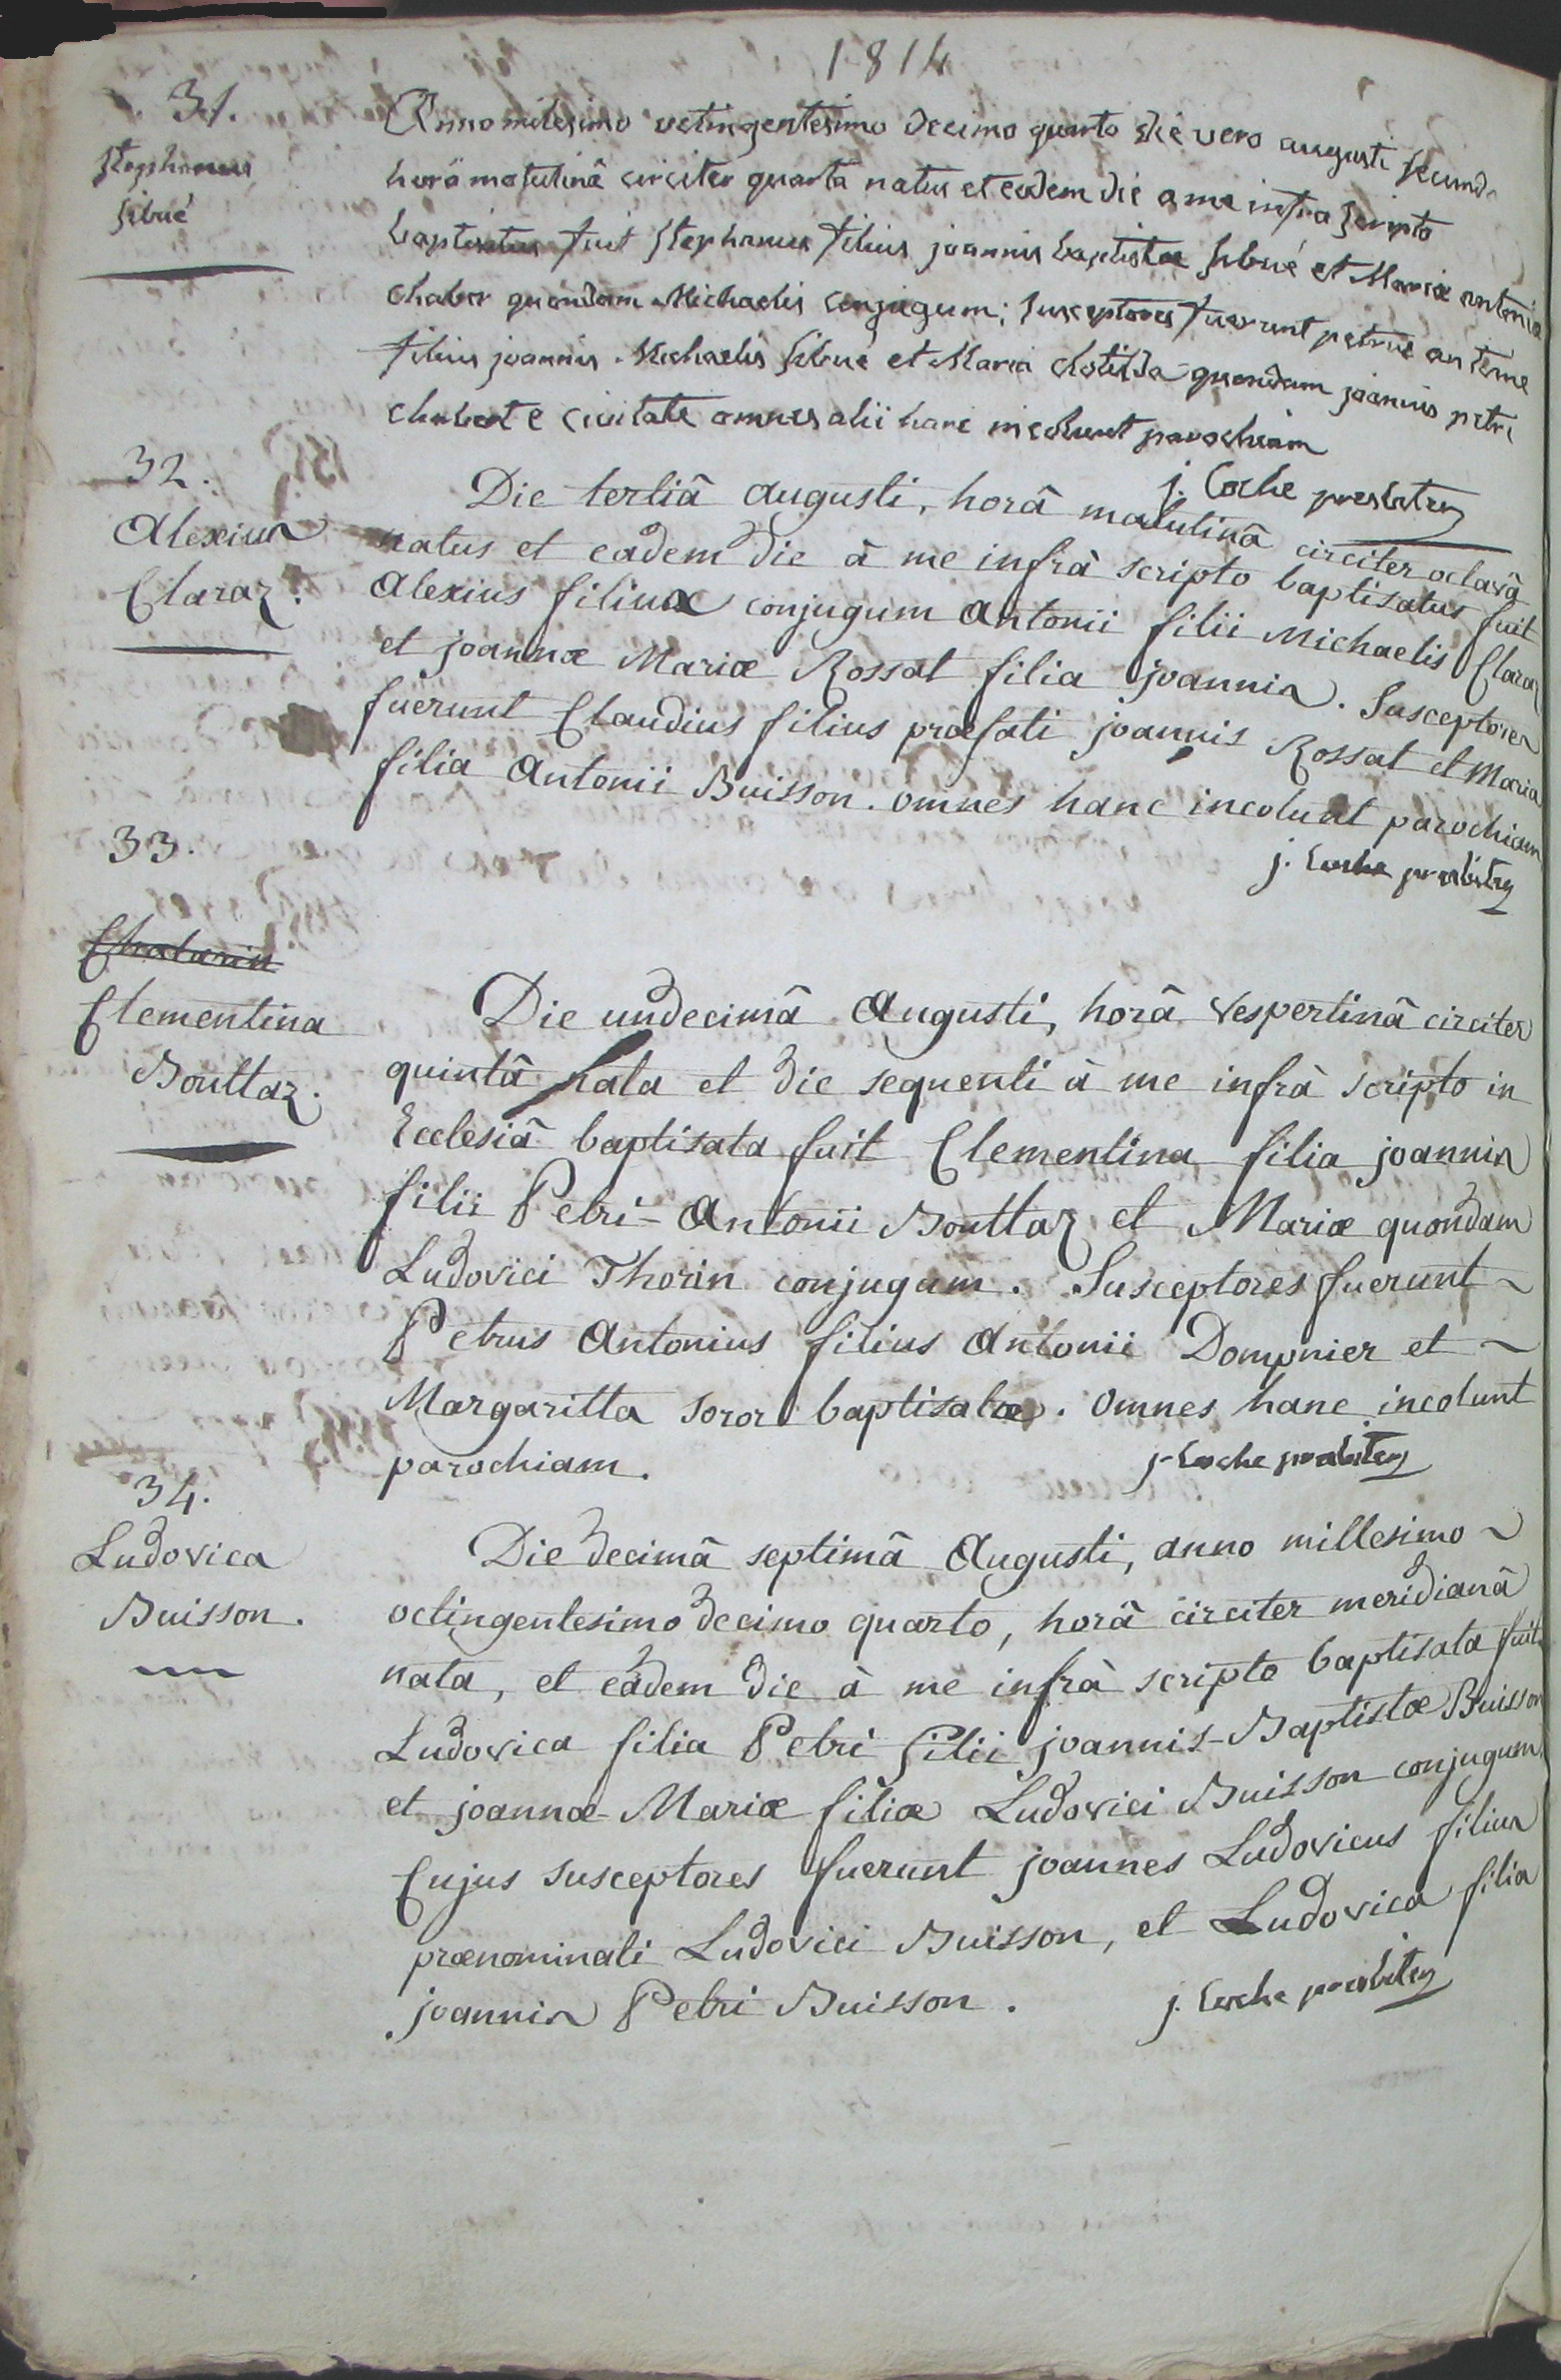 1814
31.
Stephanus
Sibué
Anno milesimo octingentesimo decimo quarto die vero augusti secunda
horâ matutinâ circiter quarta natus et eadem die a me infra scripto
baptisatus fuit Stephanus filius joannis baptistæ Sibué et Mariæ antonia
chaber quondam Michaelis conjugum; Susceptores fuerunt petrus
filius joannis Michaelis Sibué et Maria clotilda quondam joannis petri
e civitate omnes alii hanc incolunt parochiam
j. Coche presbiter
32.
Alexius
Claraz.
Die tertiâ augusti, horâ matutinâ circiter octavâ
natus et eâdem die à me infrà scripto baptisatus fuit
Alexius filius conjugum Antonii filii Michaelis Claraz
et joannæ Mariæ Rossat filia joannis. Susceptores
fuerunt Claudius filius præfati joannis Rossat et Maria
filia Antonii Buisson. omnes hanc incolunt parochiam
j. Coche presbiter
33.
Clementina
Bouttaz.
Die undecimâ Augusti, horâ vespertinâ circiter
quintâ nata et die sequenti à me infrà scripto in
Ecclesiâ baptisata fuit Clementina filia joannis
filii Petri-Antonii Bouttaz et Mariæ quondam
Ludovici Thorin conjugum. Susceptores fuerunt ~
Petrus Antonius filius Antonii Dompnier et ~
Margaritta soror baptisatæ. omnes hanc incolunt
parochiam.
j. Coche presbiter
34.
Ludovica
Buisson.
Die decimâ septimâ Augusti, anno millesimo ~
octingentesimo decimo quarto, horâ circiter meridianâ
nata, et eâdem die à me infrà scripto baptisata fuit
Ludovica filia Petri filii joannis-Baptistæ Buisson
et joannæ-Mariæ filiæ Ludovici Buisson conjugum.
Cujus susceptores fuerunt joannes Ludovicus filius
prænominati Ludovici Buisson, et Ludovica filia
joannis Petri Buisson.
j. Coche presbiter